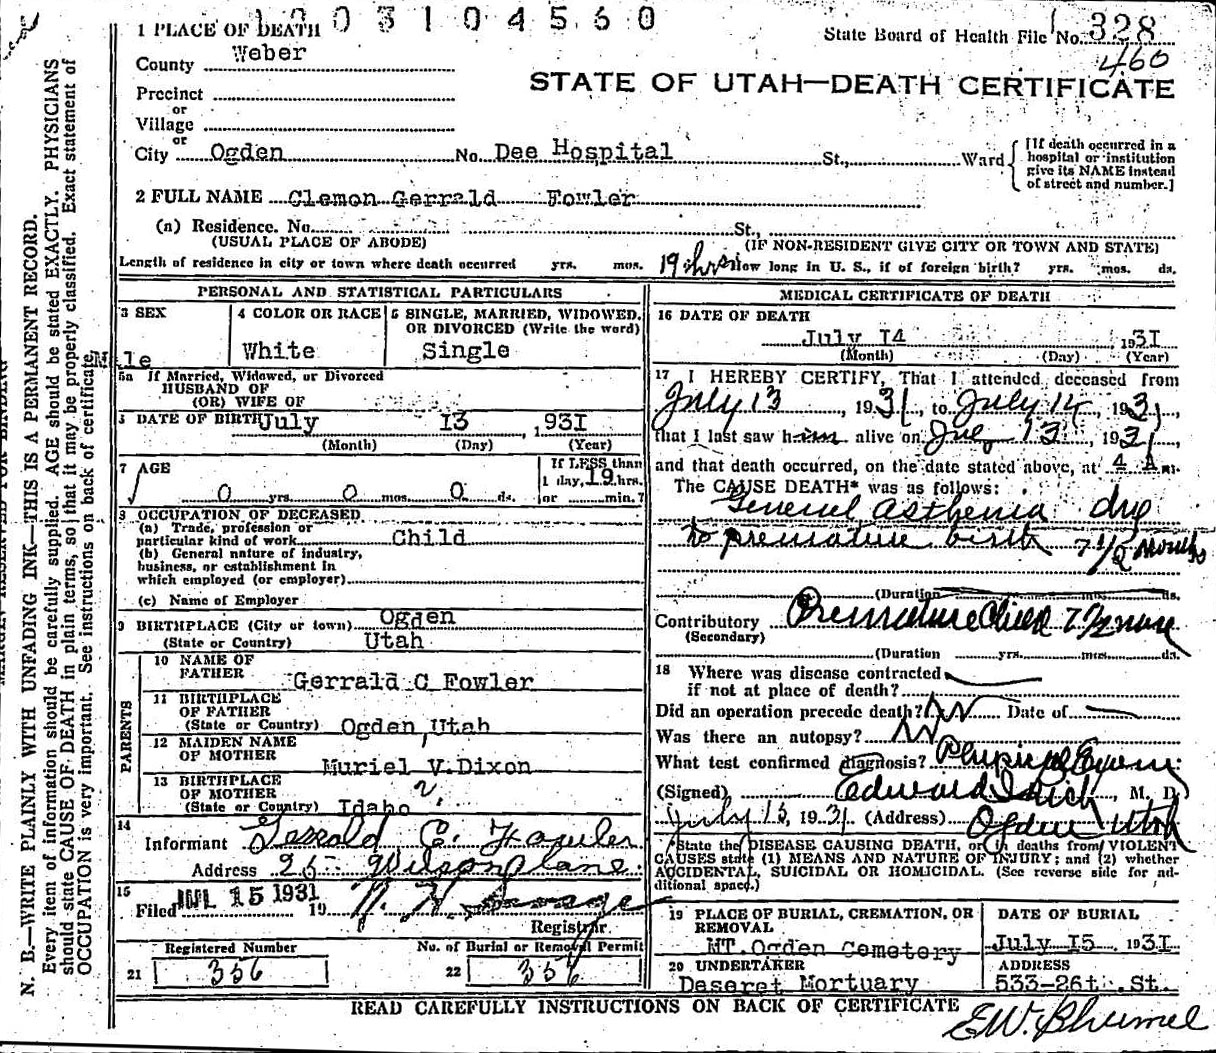 1 0 0 3 1 0 4 5 6 0
1 PLACE OF DEATH
State Board of Health File No. 328
460
County Weber
STATE OF UTAH—DEATH CERTIFICATE
Precinct
or
Village
or
City Ogden No. Dee Hospital St., Ward
[If death occurred in a hospital or institution give its NAME instead of street and number.]
2 FULL NAME Clemon Gerrald Fowler
(a) Residence. No. St.,
(USUAL PLACE OF ABODE) (IF NON-RESIDENT GIVE CITY OR TOWN AND STATE)
Length of residence in city or town where death occurred yrs. mos. 19 hrs How long in U. S., if of foreign birth? yrs. mos. ds.
PERSONAL AND STATISTICAL PARTICULARS
3 SEX
le
4 COLOR OR RACE
White
5 SINGLE, MARRIED, WIDOWED, OR DIVORCED (Write the word)
Single
5a If Married, Widowed, or Divorced
HUSBAND OF
(OR) WIFE OF
DATE OF BIRTH July 13 , 931
(Month) (Day) (Year)
7 AGE
0 yrs. 0 mos. 0 ds.
If LESS than
1 day, 19 hrs.
or min.?
8 OCCUPATION OF DECEASED
(a) Trade, profession or
particular kind of work Child
(b) General nature of industry,
business, or establishment in
which employed (or employer)
(c) Name of Employer
9 BIRTHPLACE (City or town) Ogden
(State or Country) Utah
PARENTS
10 NAME OF
FATHER Gerrald C Fowler
11 BIRTHPLACE
OF FATHER
(State or Country) Ogden, Utah
12 MAIDEN NAME
OF MOTHER Muriel V. Dixon
13 BIRTHPLACE
OF MOTHER
(State or Country) Idaho
14
Informant Gerrald C. Fowler
Address 25 Wilson Lane
15
Filed JUL 15 1931 19
Registrar
Registered Number
21 356
No. of Burial or Removal Permit
22 356
MEDICAL CERTIFICATE OF DEATH
16 DATE OF DEATH
July 14 1931
(Month) (Day) (Year)
17 I HEREBY CERTIFY, That I attended deceased from
July 13, 1931, to July 14, 1931,
that I last saw him alive on July 13, 1931
and that death occurred, on the date stated above, at 4 A m.
The CAUSE DEATH* was as follows:
General Asthenia due
to premature birth 7 1/2 Months
(Duration ds.
Contributory Premature Child 7 1/2 mos
(Secondary)
(Duration yrs. mos. ds.
18 Where was disease contracted
if not at place of death?
Did an operation precede death? No Date of
Was there an autopsy? No
What test confirmed diagnosis? Physical Exam
(Signed) Edward I Rich, M. D.
July 15, 1931 (Address) Ogden Utah
*State the DISEASE CAUSING DEATH, or in deaths from VIOLENT
CAUSES state (1) MEANS AND NATURE OF INJURY; and (2) whether
ACCIDENTAL, SUICIDAL OR HOMICIDAL. (See reverse side for additional space.)
19 PLACE OF BURIAL, CREMATION, OR REMOVAL
MT. Ogden Cemetery
DATE OF BURIAL
July 15, 1931
20 UNDERTAKER
Deseret Mortuary
ADDRESS
533-26th. St.
READ CAREFULLY INSTRUCTIONS ON BACK OF CERTIFICATE
N. B.—WRITE PLAINLY WITH UNFADING INK—THIS IS A PERMANENT RECORD.
Every item of information should be carefully supplied. AGE should be stated EXACTLY. PHYSICIANS
should state CAUSE OF DEATH in plain terms, so that it may be properly classified. Exact statement of
OCCUPATION is very important. See instructions on back of certificate.